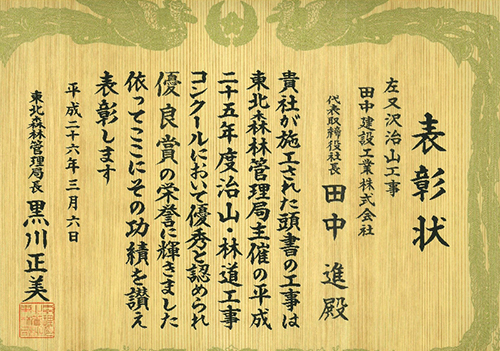 表彰状
左又沢治山工事
田中建設工業株式会社
代表取締役社長 田中 進殿
貴社が施工された頭書の工事は
東北森林管理局主催の平成
二十五年度治山・林道工事
コンクールにおいて優秀と認められ
優良賞の栄誉に輝きました
依ってここにその功績を讃え
表彰します
平成二十六年三月六日
東北森林管理局長 黒川正美